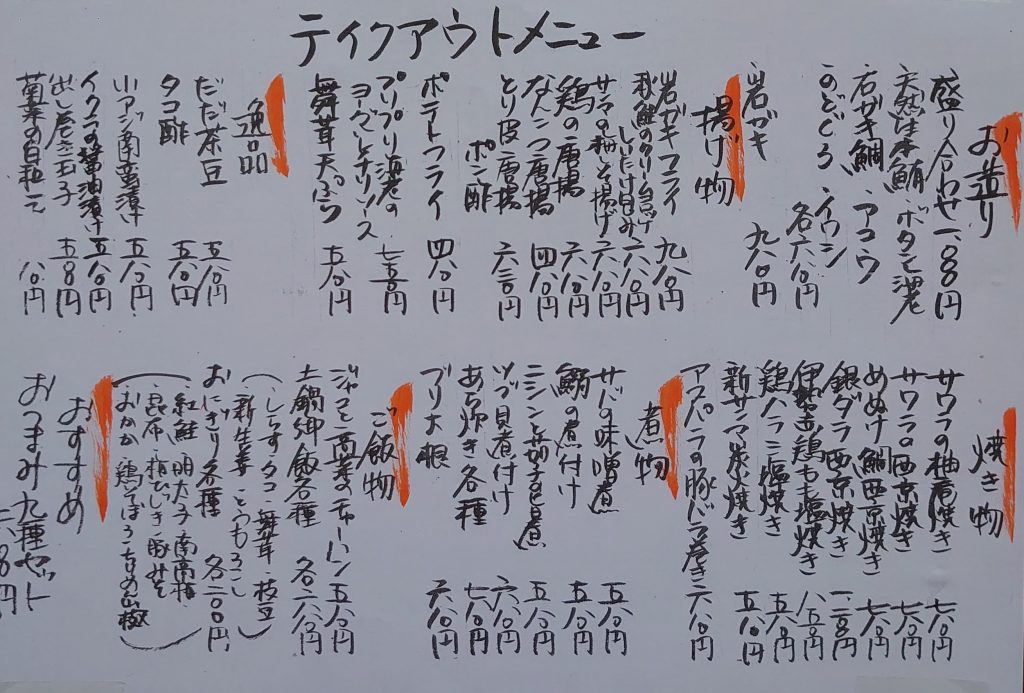 ティクアウトメニュー
お造り
盛り合わせ 一、〇八〇円
天然生本鮪 ボタン海老
石ガキ鯛 アコウ
のどぐろ イワシ
各六八〇円
岩ガキ 九八〇円
揚げ物
岩ガキフライ 九八〇円
秋鮭のクリームコロッケ 六八〇円
しいたけ旨み
サンマの柚と揚げ 六八〇円
鶏の唐揚 六八〇円
なんこつ唐揚 四八〇円
とり皮唐揚 六三〇円
ポン酢
ポテトフライ 四八〇円
プリプリ海老の
ヨーグルトチリソース 七三〇円
舞茸天ぷら 五八〇円
逸品
だだ茶豆 五八〇円
タコ酢 五八〇円
小アジ南蛮漬け 五八〇円
イクラの醤油漬け 五八〇円
出し巻き玉子 五八〇円
菊菜の白和え 八〇円
焼き物
サワラの柚庵焼き 七八〇円
サワラの西京焼き 七八〇円
めぬけ鯛西京焼き 七八〇円
銀ダラ西京焼き 一、二八〇円
伊勢赤鶏もも塩焼き 八五〇円
鶏ハラミ塩焼き 五八〇円
新サンマ炭焼き 五八〇円
アスパラの豚バラ巻き 六八〇円
煮物
サバの味噌煮 五八〇円
鰯の煮付け 五八〇円
ニシンと茄子旨煮 五八〇円
ツブ貝煮付け 六八〇円
あら炊き各種 七八〇円
ブリ大根 六八〇円
ご飯物
ジャコと高菜のチャーハン 五八〇円
土鍋御飯各種 各六八〇円
(しらす タコ 舞茸 枝豆
新生姜 とうもろこし)
おにぎり各種 各二〇〇円
(紅鮭 明太子 南高梅
昆布 梅ひじき 豚みそ
おかか 鶏そぼろ ちりめん山椒)
おすすめ
おつまみ九種セット